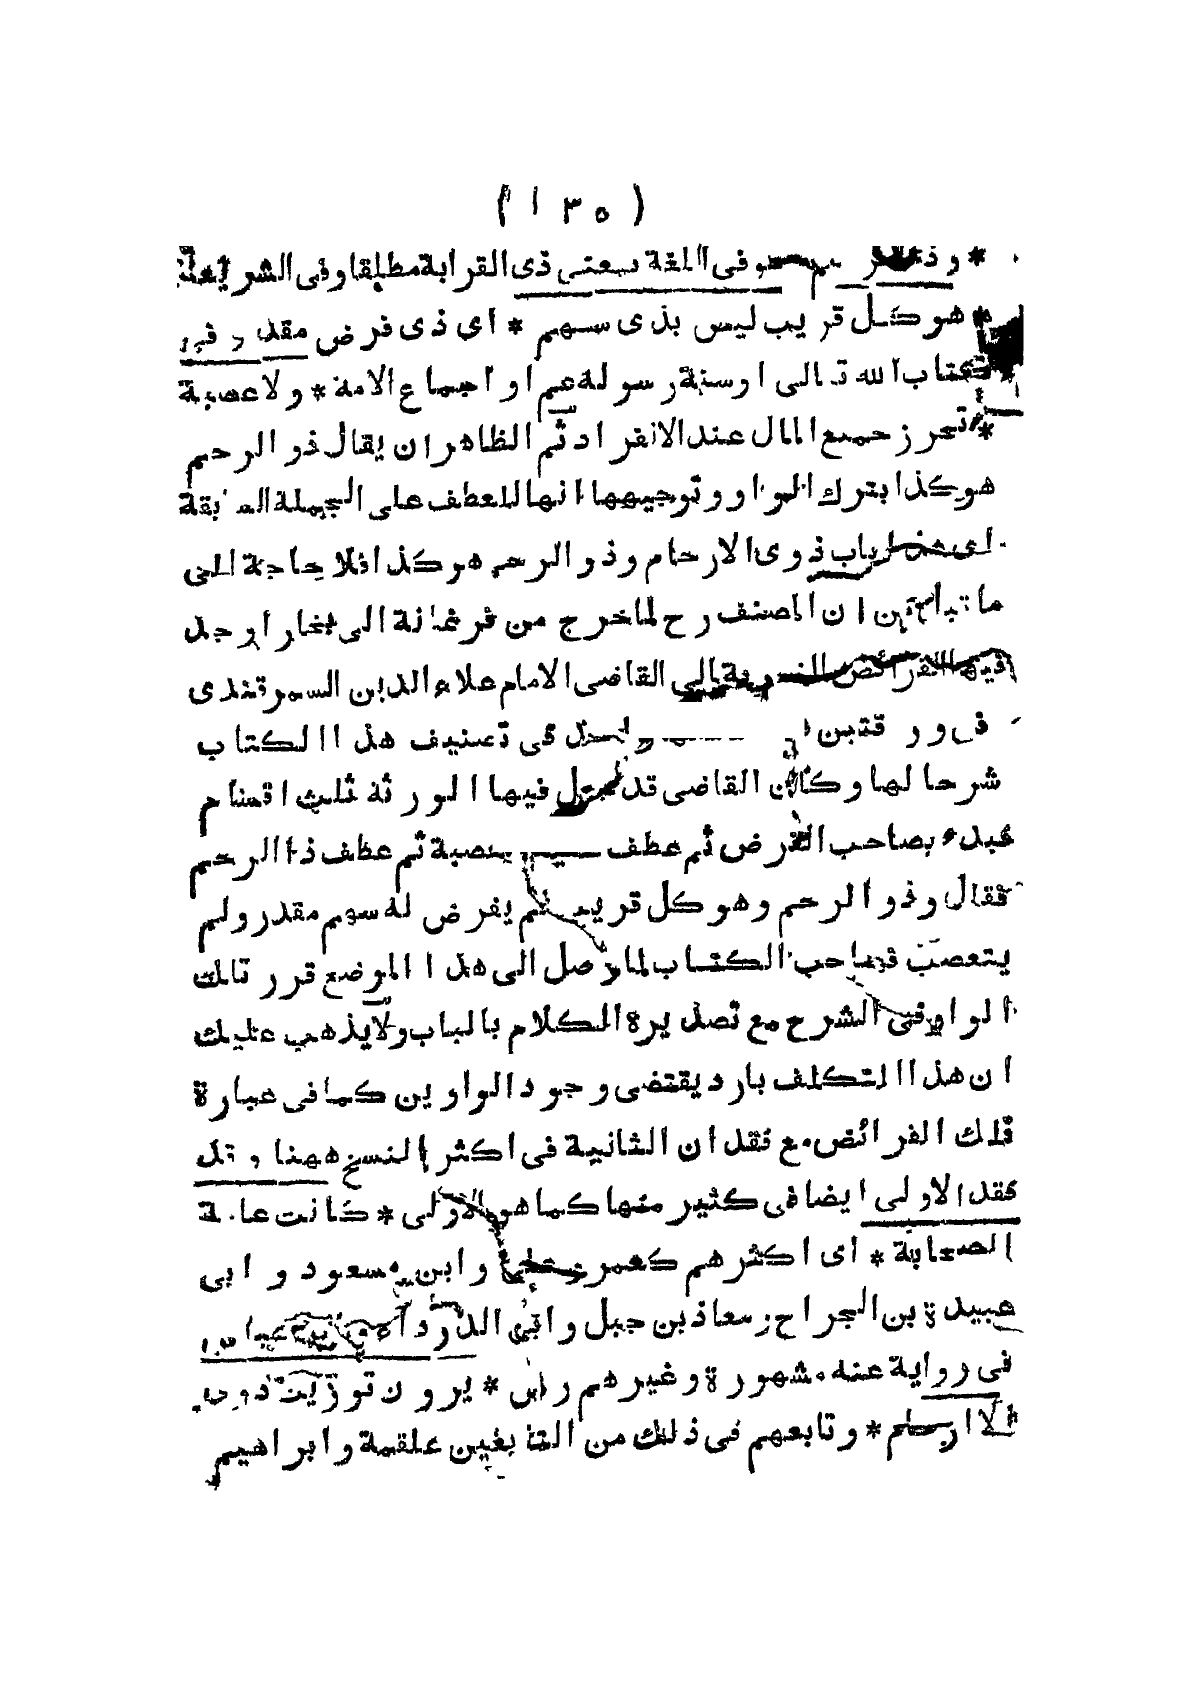 ( ١٣٥ )
* و ذو الرحم هو فى اللغة بمعنى ذى القرابة مطلقا وفى الشريعة
* هو كل قريب ليس بذى سهم * اى ذى فرض مقدر فى
كتاب الله تعالى او سنة رسوله عم او اجماع الامة * ولا عصبة
* تحرز جميع المال عند الانفراد ثم الظاهر ان يقال ذو الرحم
هو كذا بترك الواو وتوجيهها انها للعطف على الجملة السابقة
اى هذا باب ذوى الارحام وذو الرحم هو كذا فلا حاجة الى
ما قيل من ان المصنف رح لما خرج من فرغانة الى بخارا وجد
فيها الفرائض المنسوبة الى القاضى الامام علاء الدين السمرقندى
فى ورقتين فى تصنيف هذا الكتاب
شرحا لها وكان القاضى قد جعل فيها الورثة ثلث اقسام
فبدء بصاحب الفرض ثم عطف عصبة ثم عطف ذا الرحم
فقال وذو الرحم وهو كل قريب لم يفرض له سهم مقدر ولم
يتعصب فصاحب الكتاب لما وصل الى هذا الموضع قرر تلك
الواو فى الشرح مع تصديره الكلام بالباب ولا يذهب عليك
ان هذا التكلف بارد يقتضى وجود الواوين كما فى عبارة
تلك الفرائض مع فقد ان الثانية فى اكثر النسخ ههنا وقد
فقد الاولى ايضا فى كثير منها كما هو الاولى * كانت عامة
الصحابة * اى اكثرهم كعمر وعلى وابن مسعود وابى
عبيدة بن الجراح ومعاذ بن جبل وابى الدرداء وابن عباس
فى رواية عنه مشهورة وغيرهم رض * يرون توريث ذوى
الارحام * وتابعهم فى ذلك من التابعين علقمة وابراهيم